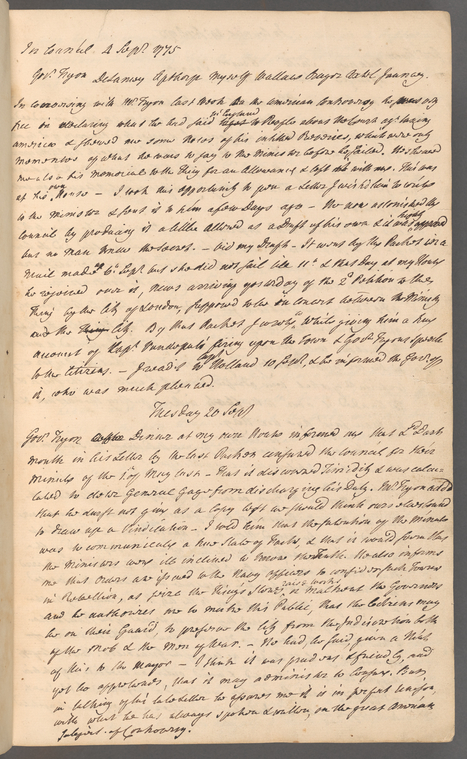 In Council 4 Sept. 1775
Gov. Tryon Delancey Apthorp myself Wallace
In conversing with Mr Tryon last Week on the American Controversy he was very
free on declaring what he had said in England to People about the Course of
America & shewed me some Notes of his
Memorandums of what he was to say to the Ministers before he sailed. He shewed
me also his Memorial to the King for an Allowance & left it with me. This was
at his own House – I took this opportunity to pen a Letter I wished him to write
to the Minister & sent it to him a few Days ago – He now astonished the
Council by producing it as a Draft of his own & it was highly approved
but no Man knew the Secret. – Vid my Draft – It went by the Packet
Mail made up 6th Sept but she did not sail till 11th & that Day at my House
he rejoiced over it, News arriving yesterday of the 2d Petition to the
King by the City of London, supposed to be in Concert between the Ministry
and the City. By that Packet I wrote Mr White giving him a true
account of Capt Vandeput's firing upon the Town & Gov. Tryon's Speech
to the Citizens. – I read it to Capt Holland 10 Sept, & he informed the Gov of
it, who was much pleased.
Tuesday 20 Sept
Gov. Tryon Dinner at my own House informed me that Ld Dart
mouth in his Letter by the last Packet censured the Council for their
Minutes of the 1st of May last – that it discovered Timidity & was calcu-
lated to deter General Gage from discharging his Duty. Mr Tryon added
that he durst not give us a Copy lest we should think ourselves bound
to draw up a Vindication – I told him that the Intention of the Minute
was to communicate a true State of Facts, & that it would seem that
the Ministers were ill inclined to know the Truth. He also informs
me that Orders are issued to the Navy Officers to consider such Towns
in Rebellion, as seize the King's Stores, raise works or maltreat the Governors
and he authorizes me to make this Public, that the Citizens may
be on their Guard, to preserve the City from the Indiscretion both
of the Mob & the Men of War. – He had, he said, given a Hint
of this to the Mayor – I think it was prudent & friendly, and
yet too opprobrious, that it may administer to Censure. But
in talking of his late Letter he assures me it is in perfect Unison
with what he has always spoken & written, on the great American
Subject of Controversy.